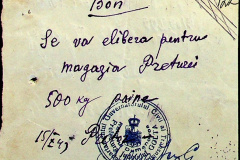 Bon
Se va elibera pentru
magazia Preturei
500 kg paine
15/I 943